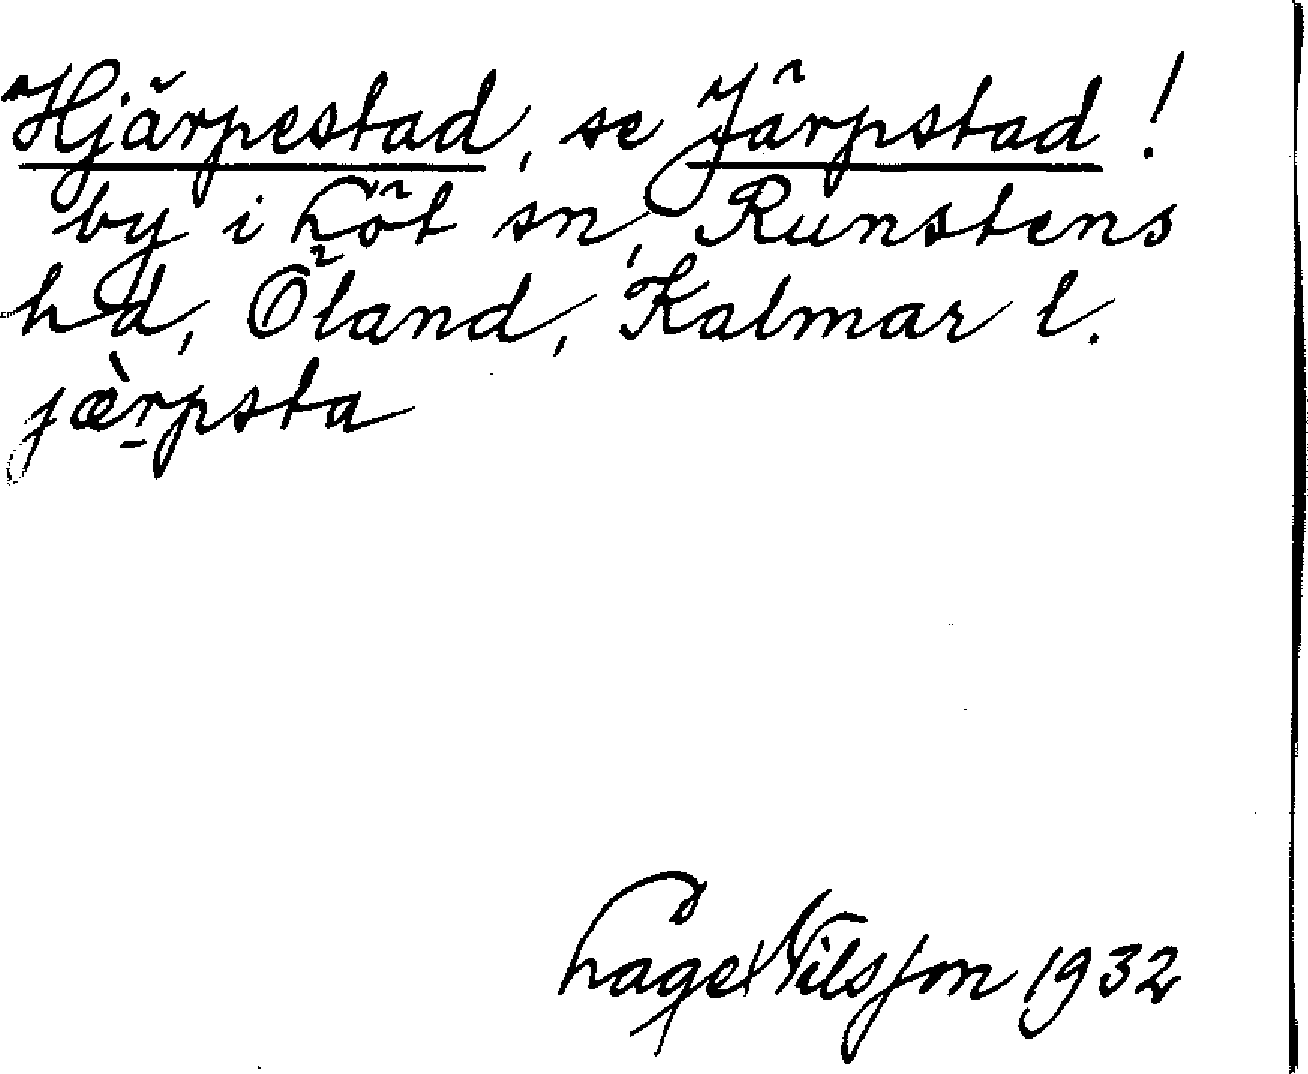 Hjärpestad, se Järpstad!
by i Löt sn, Runstens
hd, Öland, Kalmar l.
jæ̀r̠psta
Lage Nilsson 1932